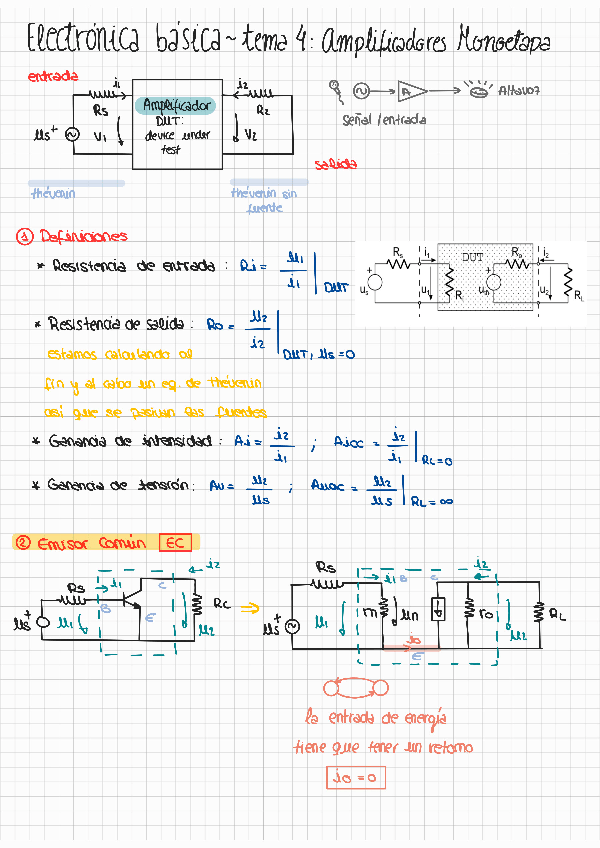 Electrónica básica ~ tema 4: Amplificadores Monoetapa
entrada
i1
i2
Rs
Amplificador
DUT:
device under
test
R2
us
+
V1
V2
A
Altavoz
Señal / entrada
salida
thévenin
thévenin sin
fuente
1 Definiciones
* Resistencia de entrada : Ri = u1 / i1 | DUT
Rs
i1
DUT
Ro
i2
us
+
u1
Ri
u2
RL
* Resistencia de salida : Ro = u2 / i2 | DUT, us = 0
estamos calculando al
fin y al cabo un eq. de thévenin
así que se pasivan las fuentes
* Ganancia de intensidad : Ai = i2 / i1 ; Aioc = i2 / i1 | RL = 0
* Ganancia de tensión : Au = u2 / us ; Auoc = u2 / us | RL = ∞
2 Emisor Común EC
Rs
i1
B
C
E
i2
us
+
u1
u2
Rc
Rs
i1
B
C
i2
us
+
u1
ro
u2
RL
io
E
la entrada de energía
tiene que tener un retorno
io = 0